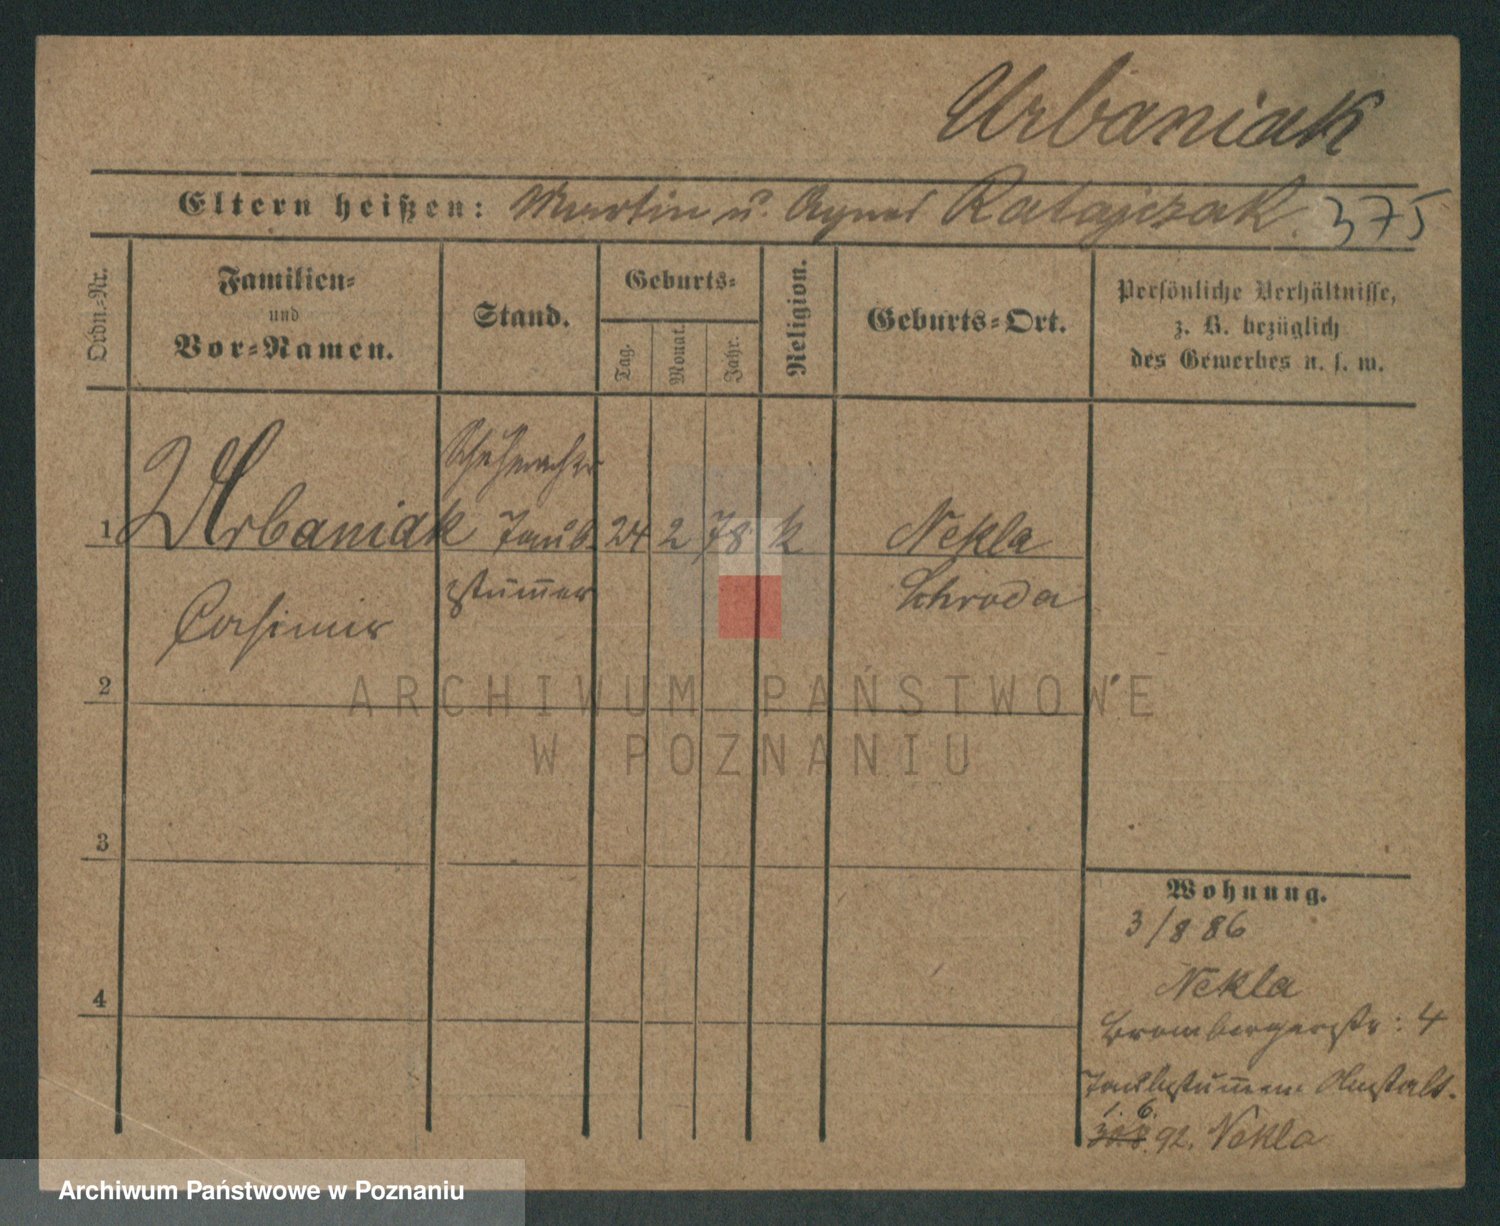 Urbaniak
Eltern heißen: Martin u. Agnes Ratajczak. 375
Ordn.-Nr.
Familien-
und
Vor-Namen.
Stand.
Geburts-
Tag.
Monat.
Jahr.
Religion.
Geburts-Ort.
Persönliche Verhältnisse,
z. B. bezüglich
des Gewerbes u. s. w.
Schuhmacher
1 Urbaniak Taub- 24 2 78 k Nekla
Casimir stummer Schroda
2
ARCHIWUM PAŃSTWOWE
W POZNANIU
3
Wohnung.
3/8 86
Nekla
4
Brombergerstr: 4
Taubstummen Anstalt.
1. 6.
30.8. 92. Nekla
Archiwum Państwowe w Poznaniu